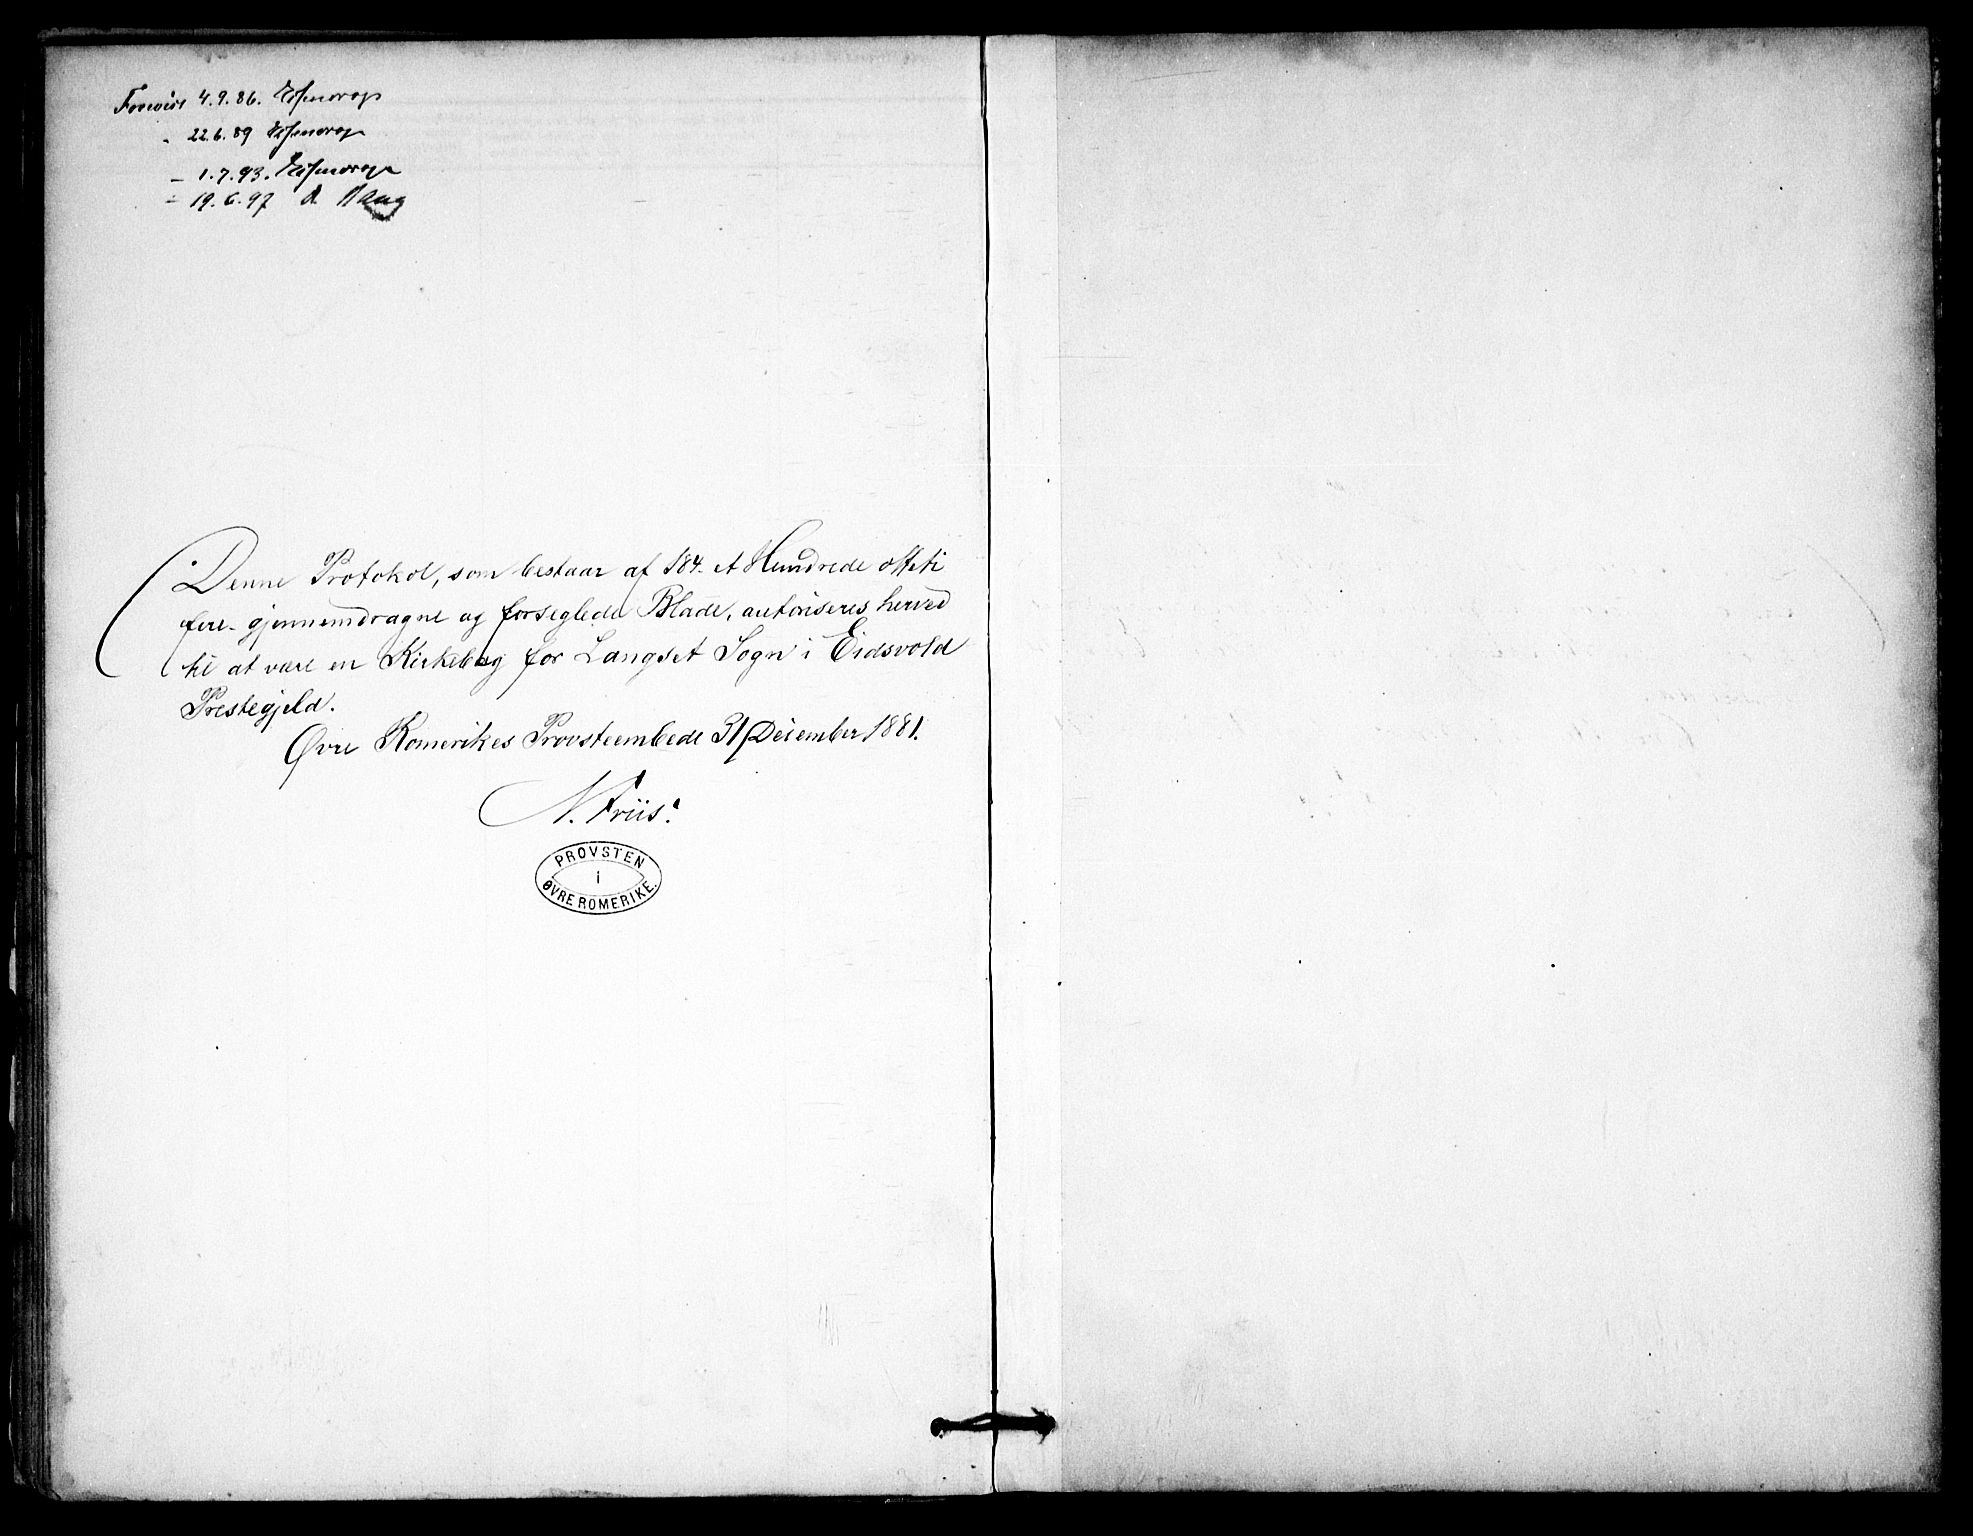 Forevist 4.9.86. Espenorap
" 22.6.89 Espenorap
– 1.7.93. Espenorap
– 19.6.97 A. Haug
Denne Protokol, som bestaar af 184. et Hundrede otteti
fire- gjennemdragne og forseglede Blade, autoriseres herved
til at være en Kirkebog for Langset Sogn i Eidsvold
Prestegjeld.
Øvre Romerikes Provsteembede 31 December 1881.
N. Friis.
PROVSTEN
i
ØVRE ROMERIKE.